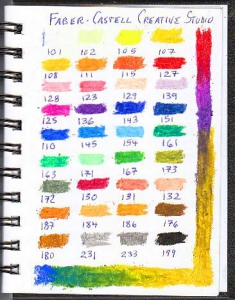 FABER-CASTELL CREATIVE STUDIO
101 102 105 107
108 111 115 127
128 123 129 139
125 136 143 151
110 145 154 161
163 171 167 173
172 130 131 132
187 184 186 176
180 231 233 199